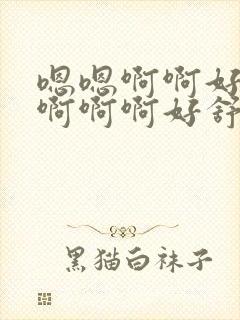 嗯嗯啊啊好
啊啊啊好舒
黑猫白袜子